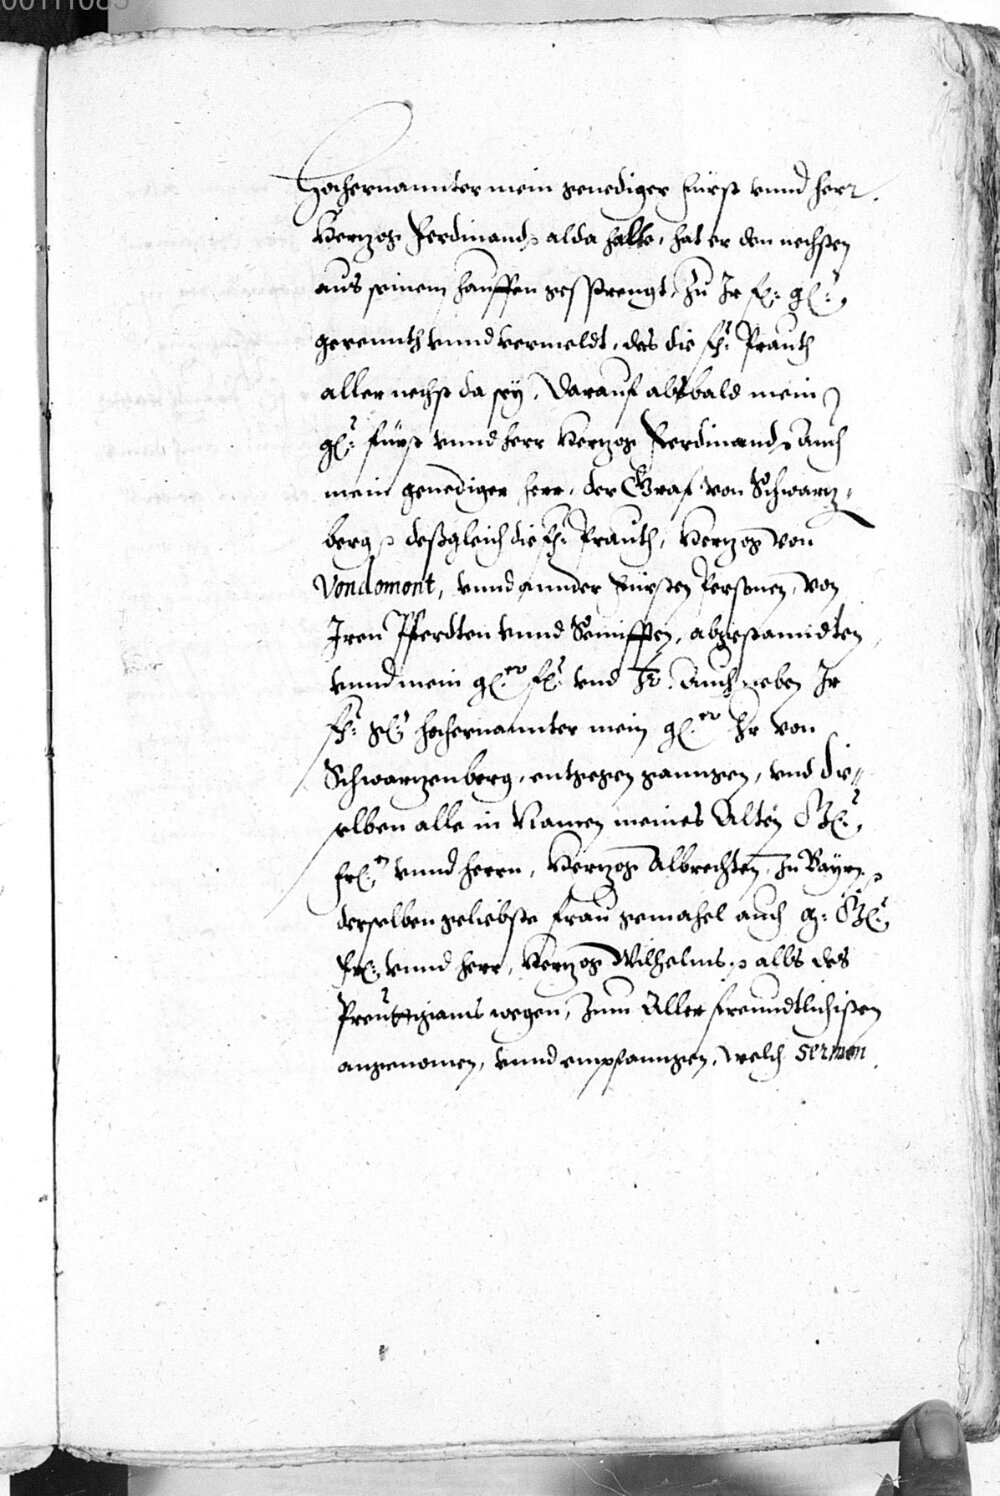 00111083
Hochernannter mein genediger Fürst vnnd herr.
Hertzog Ferdinand, alda halte, hat er den nechsten
aus seinem hauffen gesprengt, Zu Ir fl: gl:,
gerennth vnnd vermeldt, das die fh: Prauth
aller nechst da sey, Darauf alsbald mein
gl: fürst vnnd herr Hertzog Ferdinand, Auch
mein genediger herr, der Graf von Schwartz,
berg, deßgleich die fh: Prauth, Hertzog von
Vondomont, vnnd annder Fürsten Personen, von
Iren Pferdten vnnd abgestanndten
vnnd mein gl:er fl: vnd hr: Auch neben Ir
fh: gl: hochernannter mein gl:er hr von
Schwartzenberg, entgegen ganngen, vnd die„
selben alle in Namen meines Alten
vnnd herrn, Hertzog Albrechten, Zu Bayrn,
derselben geliebste Frau gemahel auch g:
vnnd herr, Hertzog Wilhelms, alls des
Preutigiams wegen, Zum Aller freundtlichisten
angenomen, vnnd empfanngen, welch Sermon